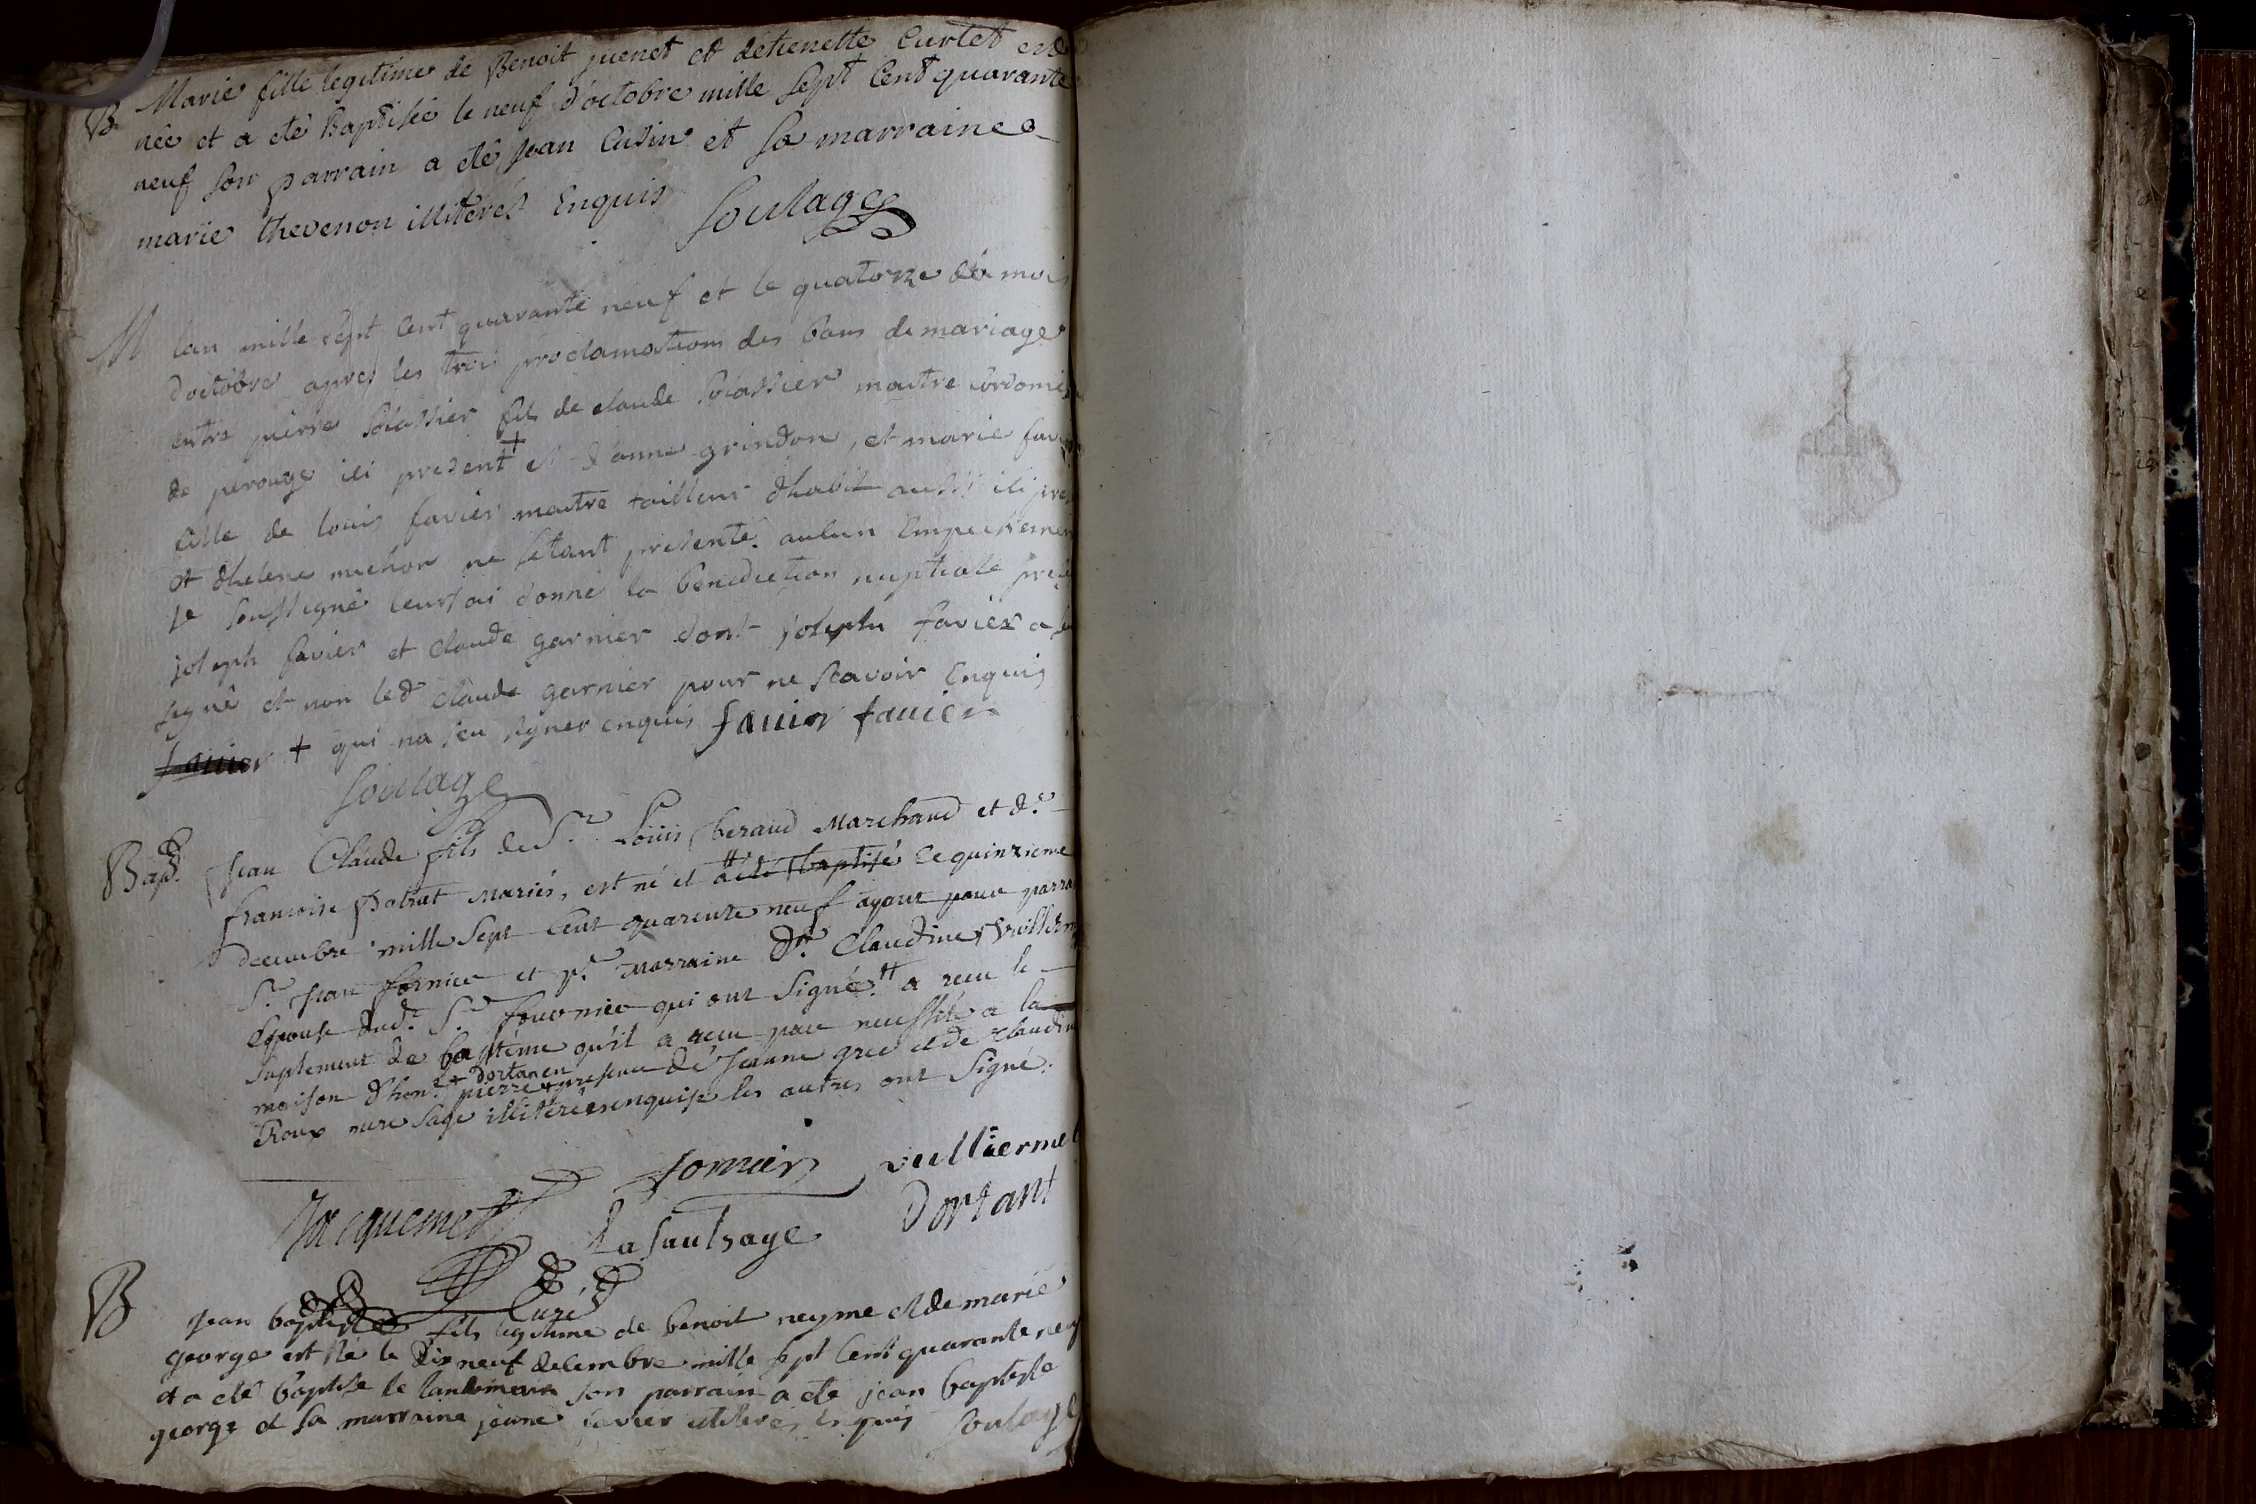 B Marie fille legitime de Benoit juenet et detienette Curtet
née et a eté Baptisée le neuf d'octobre mille sept Cent quarante
neuf son parrain a eté jean Cusin et sa marraine
marie thevenon illiterés Enquis
Soulage
M lan mille sept Cent quarante neuf et le quatorze du mois
doctobre apres les trois proclamations des bans de mariage
entre pierre fils de claude maitre
de perouge ici present + et danne grindon, et marie
fille de louis favier maitre tailleur dhabit aussi ici
et dhelene michon ne setant presenté aucun
je soussigné leurs ai donné la benediction nuptiale
joseph favier et claude garnier dont joseph favier a
signé et non led claude garnier pour ne scavoir Enquis
favier + qui na seu signer enquis favier favier
Soulage
Bap. Jean Claude fils de Sr. Loüis beraud Marchand et de.
francoise Mariés, est né et a eté baptisé ce quinzieme
decembre mille sept cent quarente neuf ayant pour
Sr. Jean fornier et pr. Marraine De. Claudine
Epouse dud. Sr. fournier qui ont signé. tt a reçu le
suplement de baptême qu'il a reçu par necessité a la
maison d'hon. pierre + dortan en presence de Jeanne et de Claudine
Roux mere sage illiterées enquise les autres ont signé.
fornier vulliermet
Jacquemet Lasaulsaye Dortant
Curé
B jean baptiste fils legitime de benoit neyme et de marie
george est né le dix neuf decembre mille sept Cent quarante neuf
et a eté baptisé le landemain son parrain a eté jean baptiste
george et sa marraine jeane favier illiteres enquis Soulage